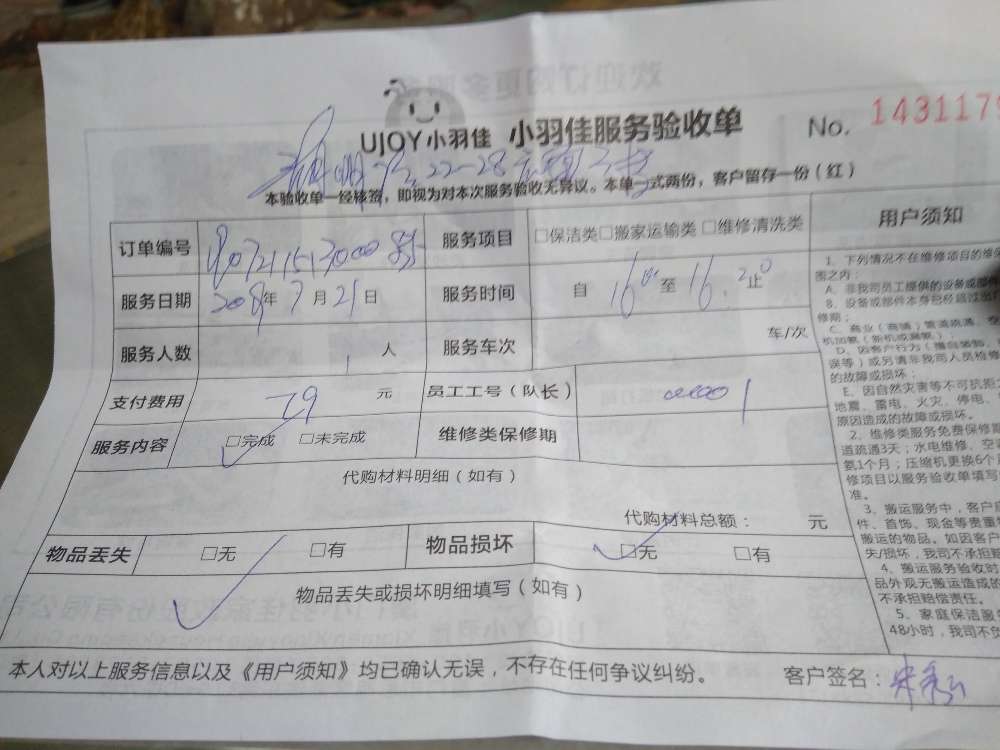 UJOY小羽佳 小羽佳服务验收单 No. 1431179
22-28
本验收单一经核签，即视为对本次服务验收无异议。本单一式两份，客户留存一份（红）
订单编号 服务项目 □保洁类□搬家运输类□维修清洗类
服务日期 2018年7月21日 服务时间 自 16 00 至 16 20 止
服务人数 1 人 服务车次 车/次
支付费用 79 元 员工工号（队长） 00001
服务内容 □完成 □未完成 维修类保修期
代购材料明细（如有）
代购材料总额： 元
物品丢失 □无 □有 物品损坏 □无 □有
物品丢失或损坏明细填写（如有）
本人对以上服务信息以及《用户须知》均已确认无误，不存在任何争议纠纷。 客户签名：
用户须知
1、下列情况不在维修项目的维
围之内：
A、非我司员工提供的设备或部件
B、设备或部件本身已经超过
修期；
C、商业（商铺）管道疏通、空
机加氨（新机或漏氨）
D、因客户行为（擅自
误等）或另请非我司人员检修
的故障或损坏；
E、因自然灾害等不可抗拒
地震、雷电、火灾、停电、
原因造成的故障或损坏。
2、维修类服务免费保修期
道疏通3天；水电维修、空
氨1个月；压缩机更换6个
修项目以服务验收单填写
准。
3、搬运服务中，客户
件、首饰、现金等贵重
搬运的物品。如因客户
失/损坏，我司不承担
4、搬运服务验收时
品外观无搬运造成的
不承担赔偿责任。
5、家庭保洁服
48小时，我司不